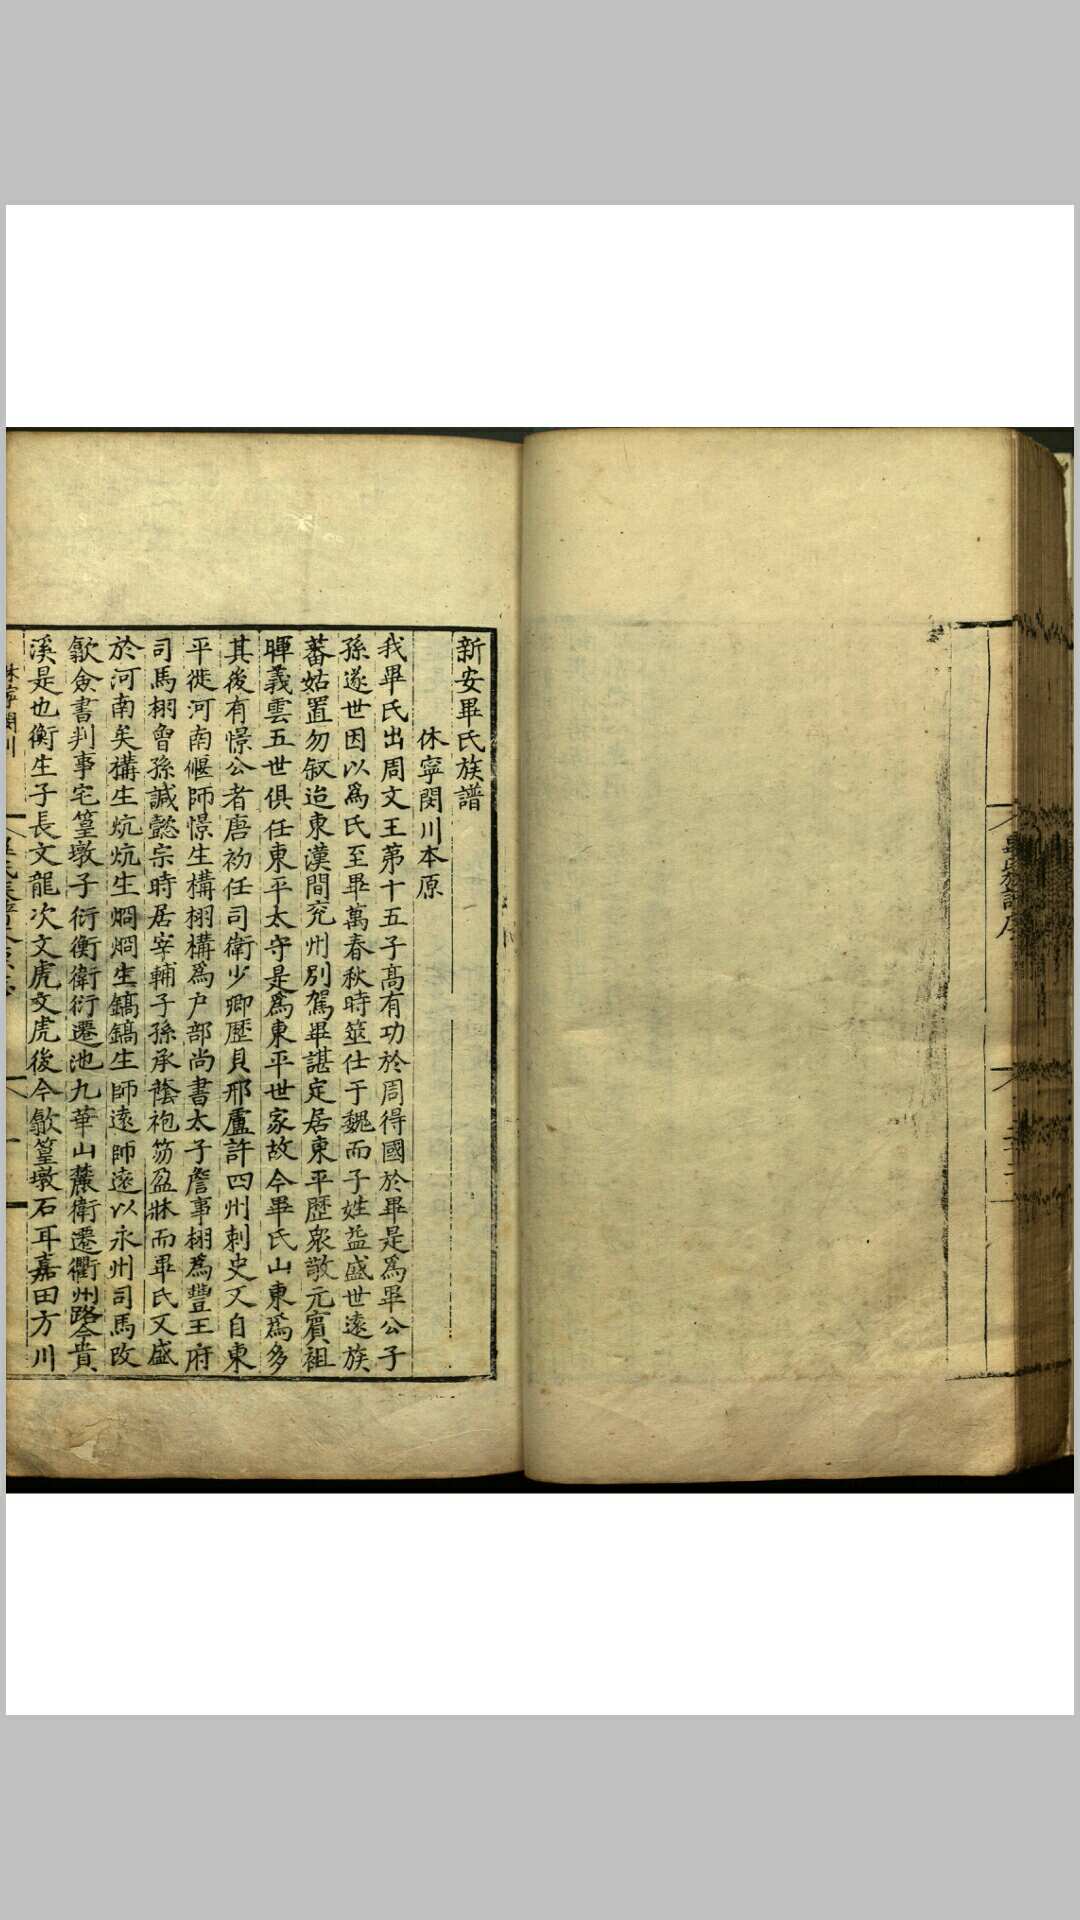 新安畢氏族譜
休寧閔川本原
我畢氏出周文王第十五子高有功於周得國於畢是爲畢公子
孫遂世因以爲氏至畢萬春秋時筮仕于魏而子姓益盛世遠族
蕃姑置勿叙迨東漢間兖州別駕畢諶定居東平歷衆敬元賓祖
暉義雲五世俱任東平太守是爲東平世家故今畢氏山東爲多
其後有憬公者唐初任司衛少卿歷貝邢廬許四州刺史又自東
平徙河南偃師憬生構栩構爲户部尚書太子詹事栩爲豐王府
司馬栩曾孫諴懿宗時居宰輔子孫承蔭袍笏盈牀而畢氏又盛
於河南矣構生炕炕生烱烱生鎬鎬生師遠師遠以永州司馬改
歙僉書判事宅篁墩子衍衡衛衍遷池九華山麓衛遷衢州路今貴
溪是也衡生子長文龍次文虎文虎後今歙篁墩石耳嘉田方川
休寧閔川